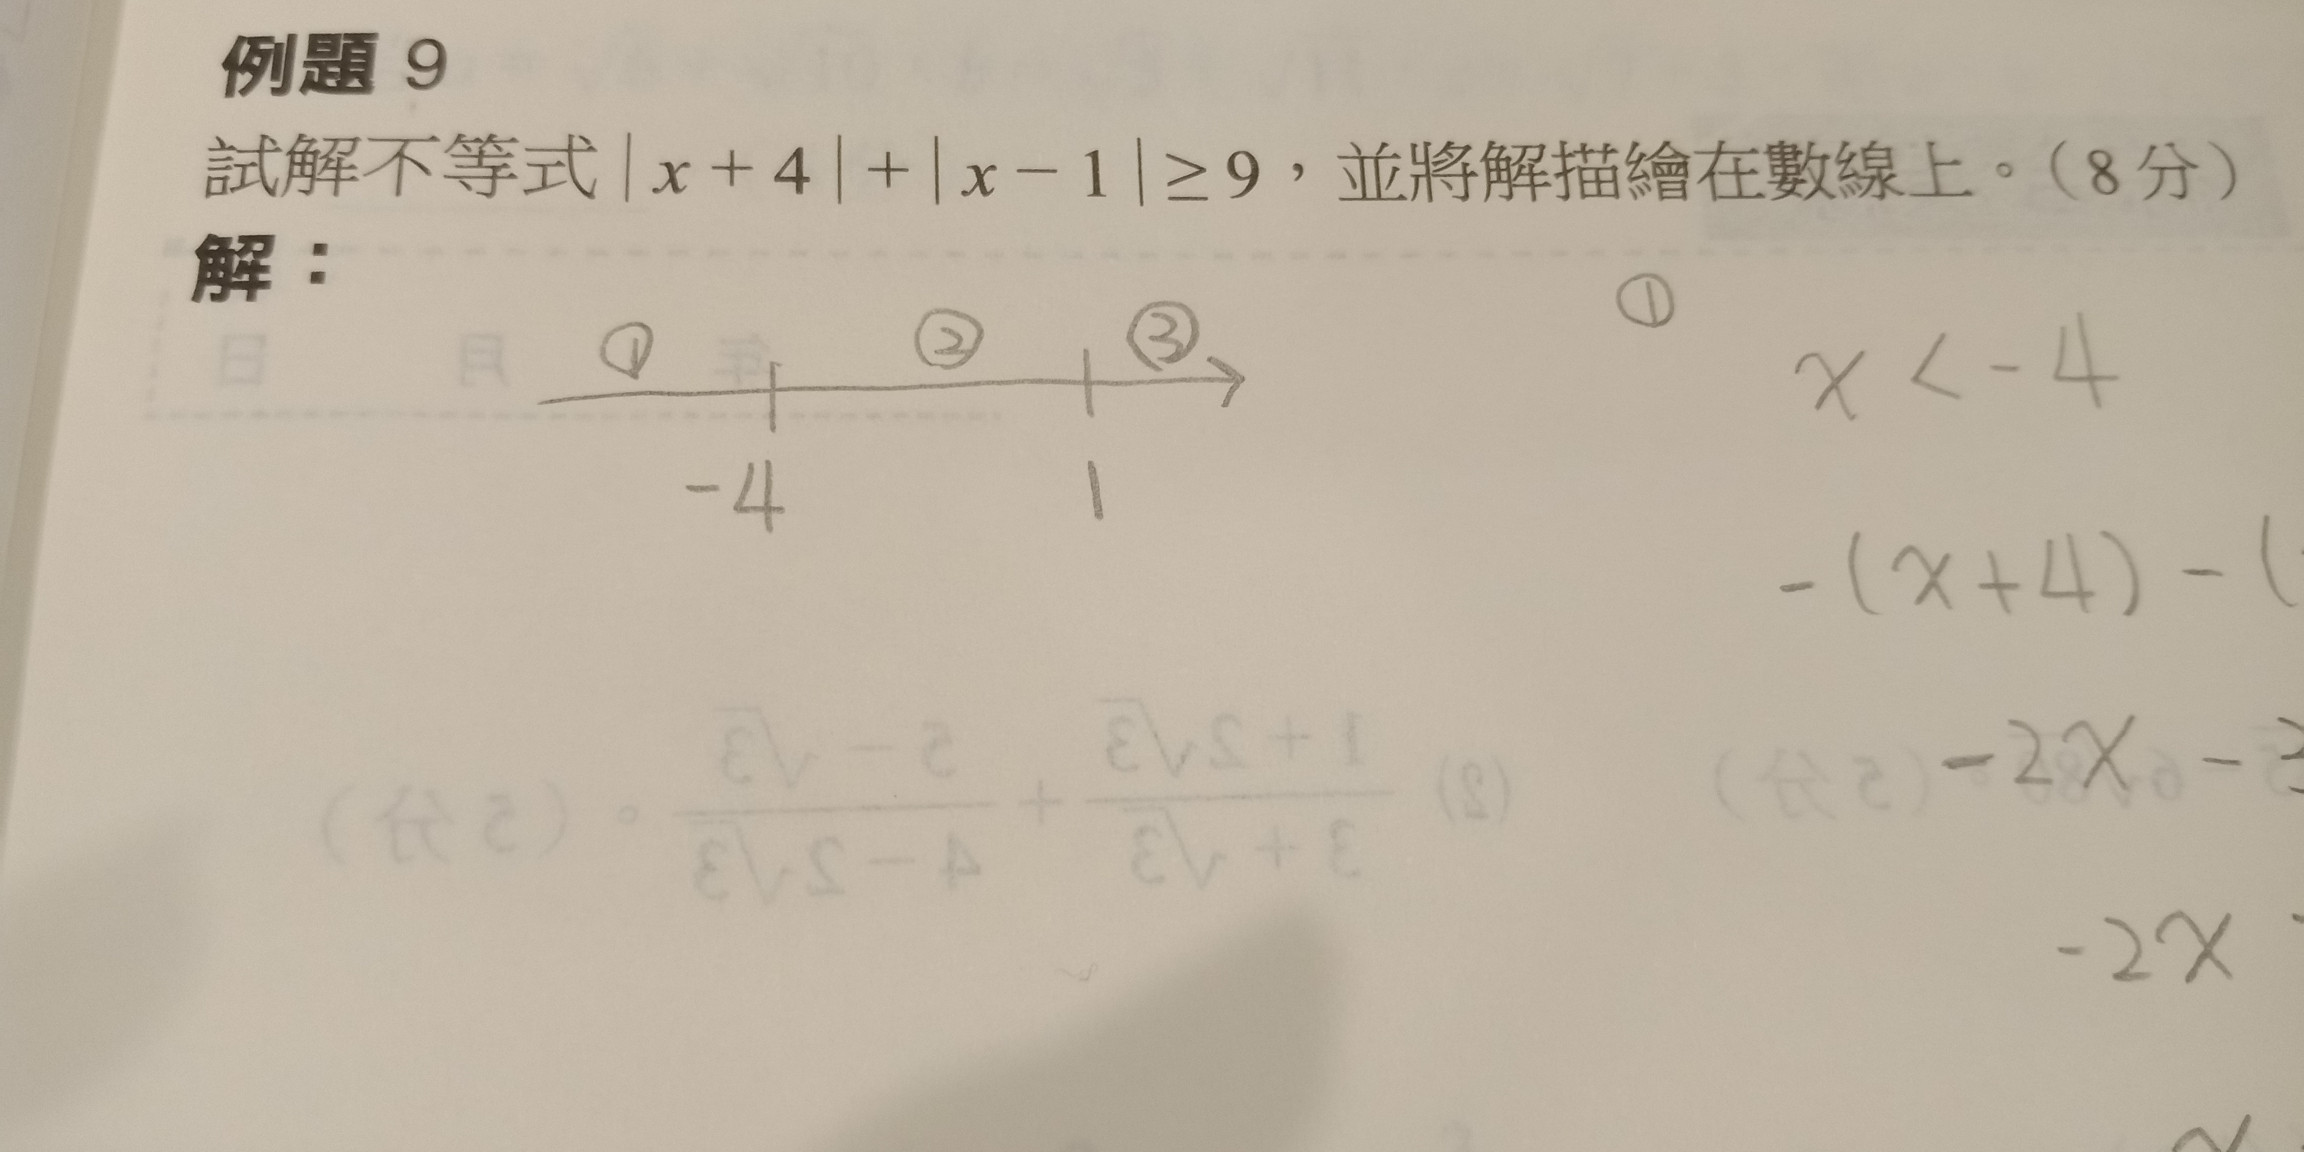 例題 9
試解不等式|x+4|+|x-1|≥9，並將解描繪在數線上。（8分）
解：
① ② ③
-4 1
①
x<-4
-(x+4)-(
-2x-3
-2x